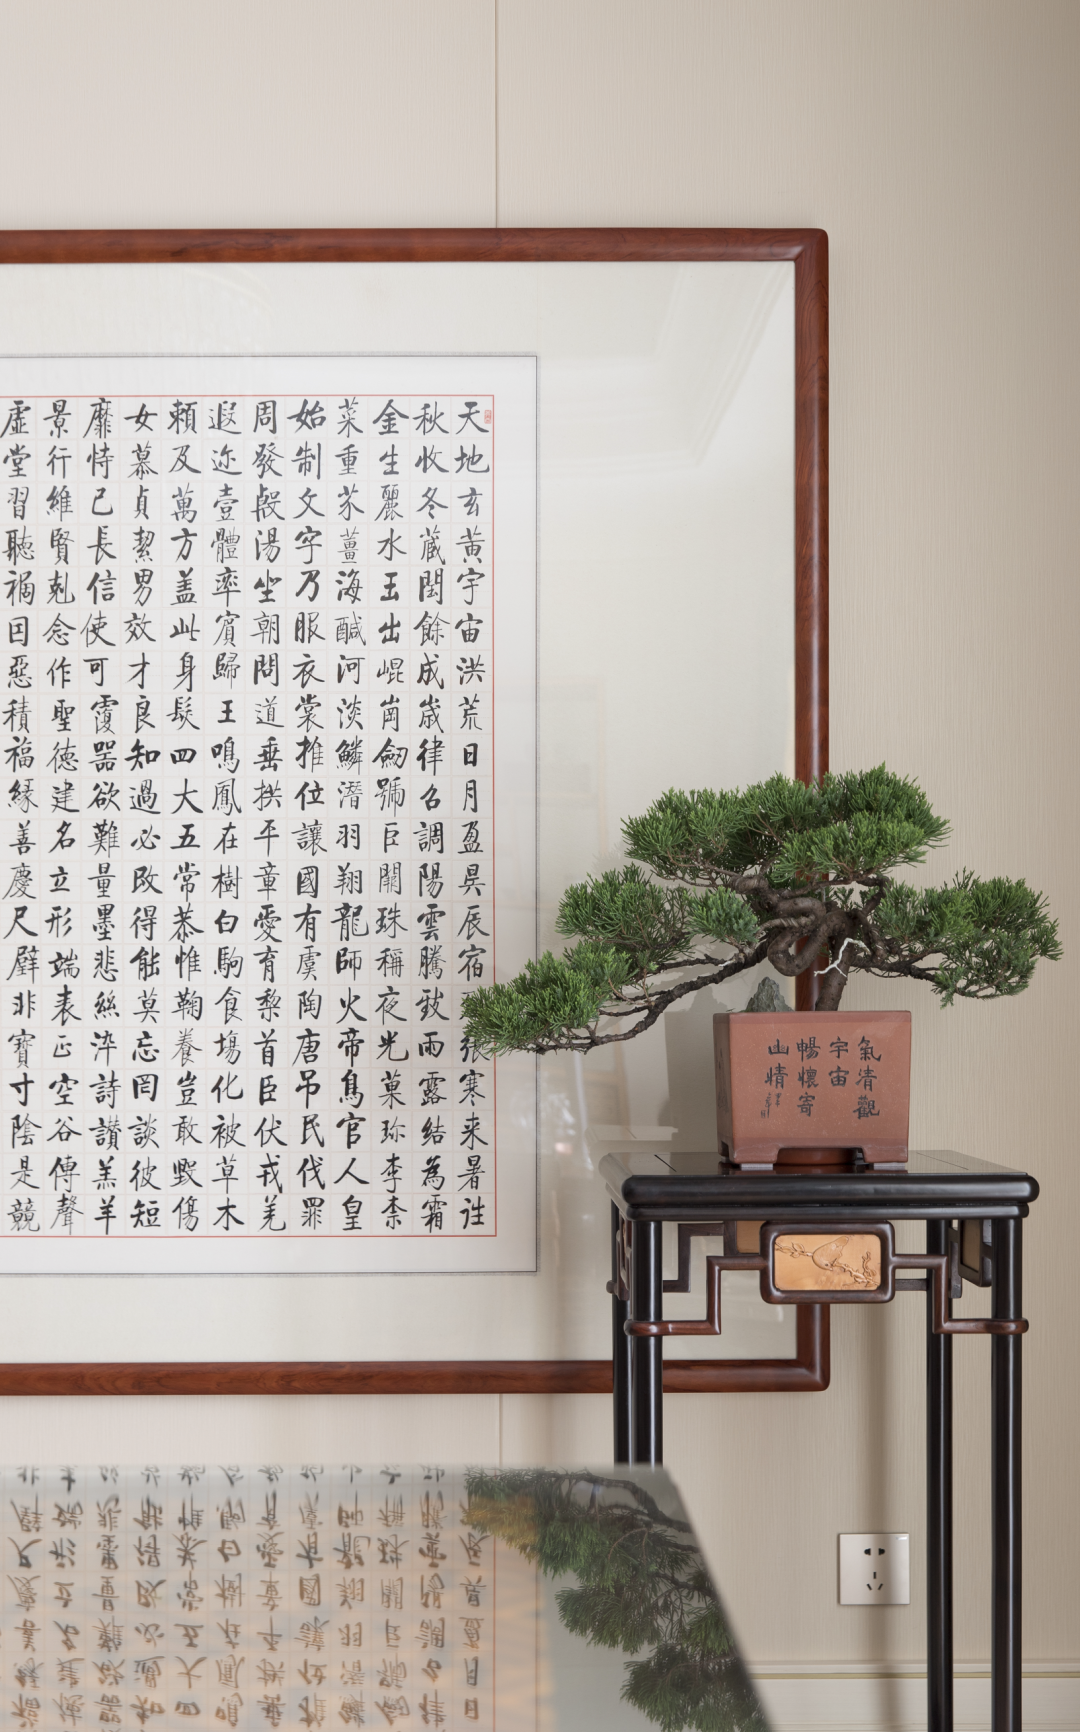 天地玄黃宇宙洪荒日月盈昃辰宿列張寒来暑往
秋收冬蔵閏餘成歲律召調陽雲騰致雨露結為霜
金生麗水玉出崐崗劒號巨闕珠稱夜光菓珎李柰
菜重芥薑海醎河淡鱗潛羽翔龍師火帝鳥官人皇
始制文字乃服衣裳推位讓國有虞陶唐吊民伐罪
周發殷湯坐朝問道垂拱平章愛育黎首臣伏戎羌
遐迩壹體率賓歸王鳴鳳在樹白駒食場化被草木
賴及萬方盖此身髮四大五常恭惟鞠養豈敢毀傷
女慕貞絜男效才良知過必改得能莫忘罔談彼短
靡恃己長信使可覆器欲難量墨悲絲染詩讃羔羊
景行維賢剋念作聖德建名立形端表正空谷傳聲
虛堂習聽禍因惡積福緣善慶尺璧非寶寸陰是競
氣清觀
宇宙
暢懷寄
山情